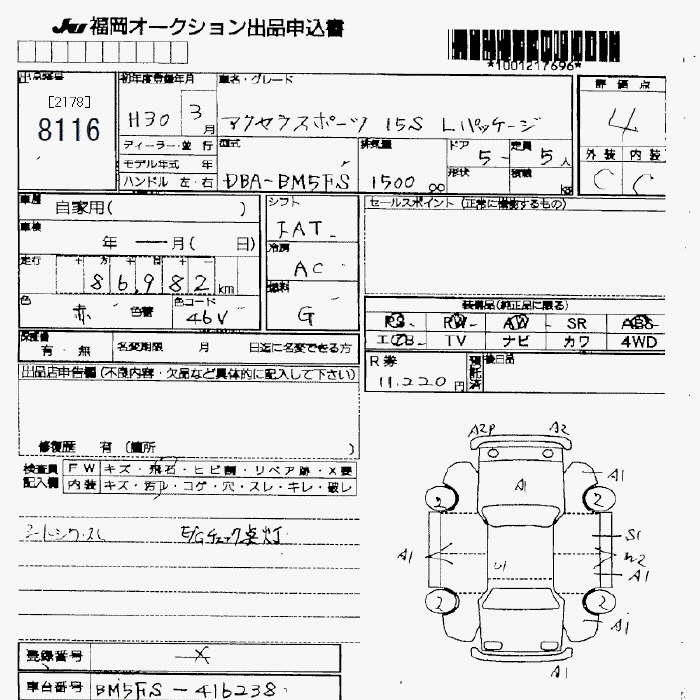 JU 福岡オークション出品申込書
*1001217696*
出品番号
[2178]
8116
初年度登録年月
H30 3月
車名・グレード
アクセラスポーツ 15S Lパッケージ
評価点
4
外装 内装
C C
ディーラー・並行
モデル年式 年
ハンドル 左・右
型式
DBA-BM5FS
排気量
1500 cc
ドア
5-
定員
5人
形状
積載
kg
車歴
自家用( )
車検
年 — 月( 日)
走行
十 万 千 百 十 一
86,982 km
色
赤
色替
色コード
46V
シフト
FAT
冷房
AC
燃料
G
セールスポイント (正常に機能するもの)
装備品(純正品に限る)
PS PW AW SR ABS
エアB TV ナビ カワ 4WD
R券
11,220円
預託済
後日品
保証書
有・無
名変期限 月 日迄に名変できる方
出品店申告欄 (不良内容・欠品など具体的に記入して下さい)
修復歴 有 (箇所 )
検査員
記入欄
FW キズ・飛石・ヒビ割・リペア跡・X要
内装 キズ・汚レ・コゲ・穴・スレ・キレ・破レ
E/Gチェック点灯
A2P A2
A1
A1
2 2
S1
A1
U1
W2
A1
2 2
A1
A1
登録番号
X
車台番号
BM5FS-416238